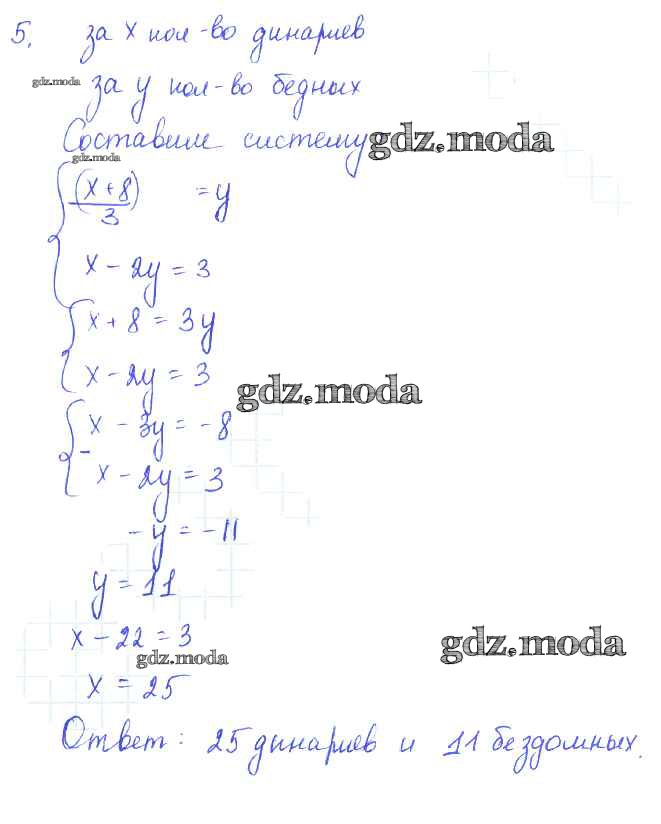 5. за x кол-во динариев
gdz.moda
за y кол-во бедных
Составим систему gdz.moda
gdz.moda
(x+8)/3 = y
x - 2y = 3
x + 8 = 3y
x - 2y = 3
gdz.moda
x - 3y = -8
- x - 2y = 3
-y = -11
y = 11
x - 22 = 3
gdz.moda
gdz.moda
x = 25
Ответ: 25 динариев и 11 бездомных.